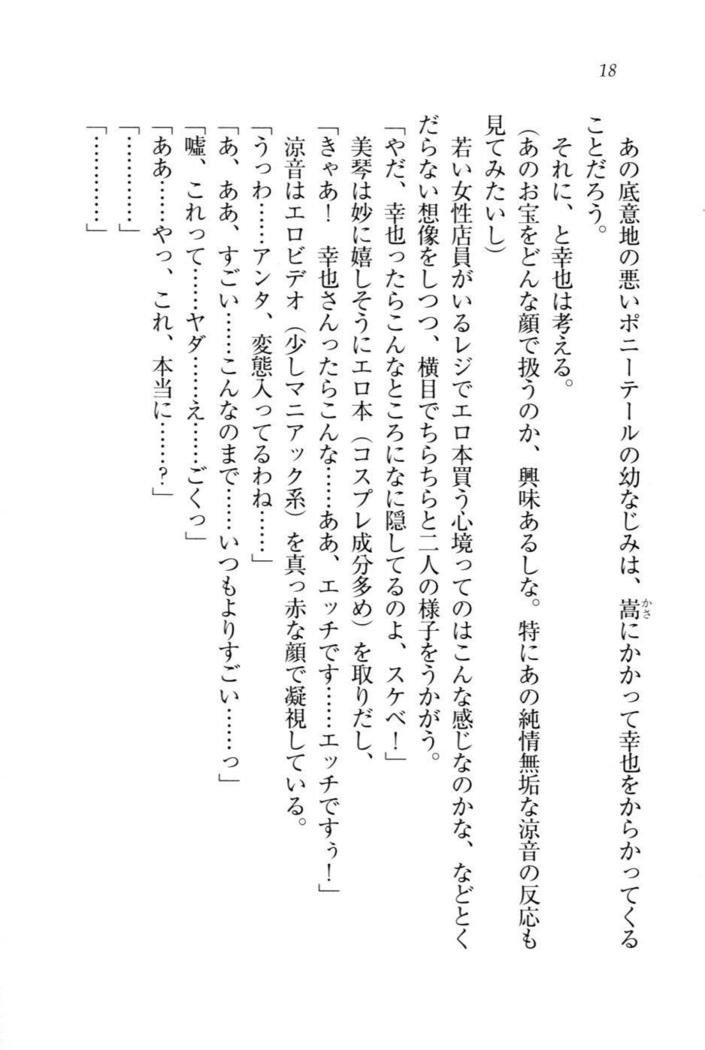 18
あの底意地の悪いポニーテールの幼なじみは、嵩にかかって幸也をからかってくる
かさ
ことだろう。
それに、と幸也は考える。
(あのお宝をどんな顔で扱うのか、興味あるしな。特にあの純情無垢な涼音の反応も
見てみたいし)
若い女性店員がいるレジでエロ本買う心境ってのはこんな感じなのかな、などとく
だらない想像をしつつ、横目でちらちらと二人の様子をうかがう。
「やだ、幸也ったらこんなところになに隠してるのよ、スケベ!」
美琴は妙に嬉しそうにエロ本(コスプレ成分多め)を取りだし、
「きゃあ! 幸也さんったらこんな……ああ、エッチです……エッチですぅ!」
涼音はエロビデオ(少しマニアック系)を真っ赤な顔で凝視している。
「うっわ……アンタ、変態入ってるわね……」
「あ、ああ、すごい……こんなのまで……いつもよりすごい……っ」
「嘘、これって……ヤダ……え……ごくっ」
「ああ……やっ、これ、本当に……?」
「…………」
「…………」